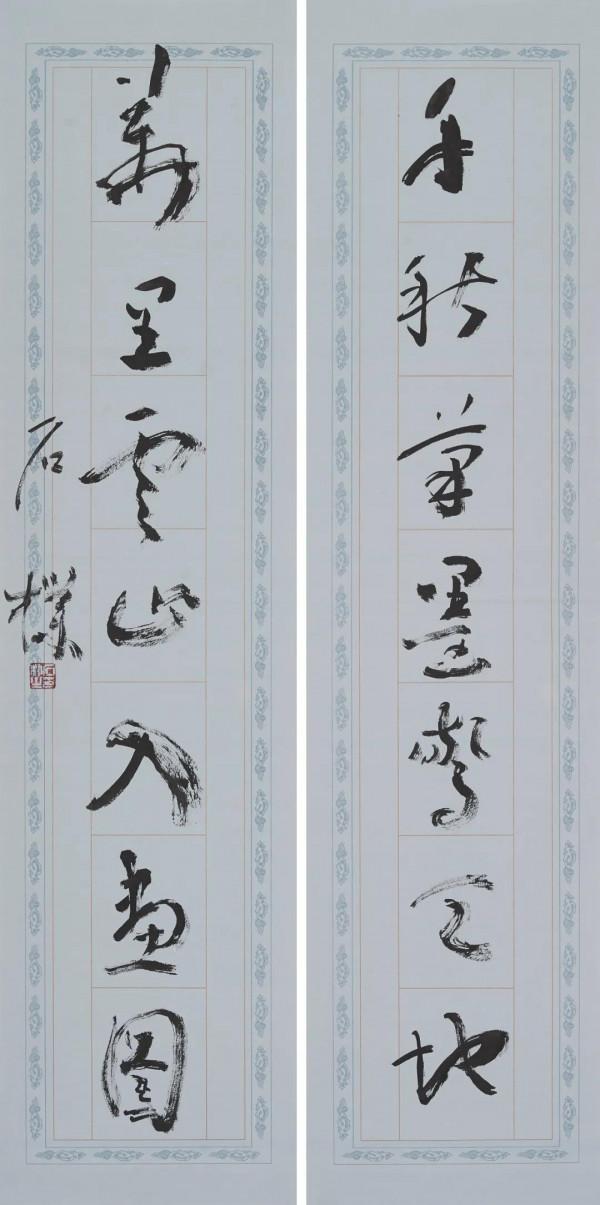 千秋筆墨驚天地
萬里雲山入畫圖
石樸